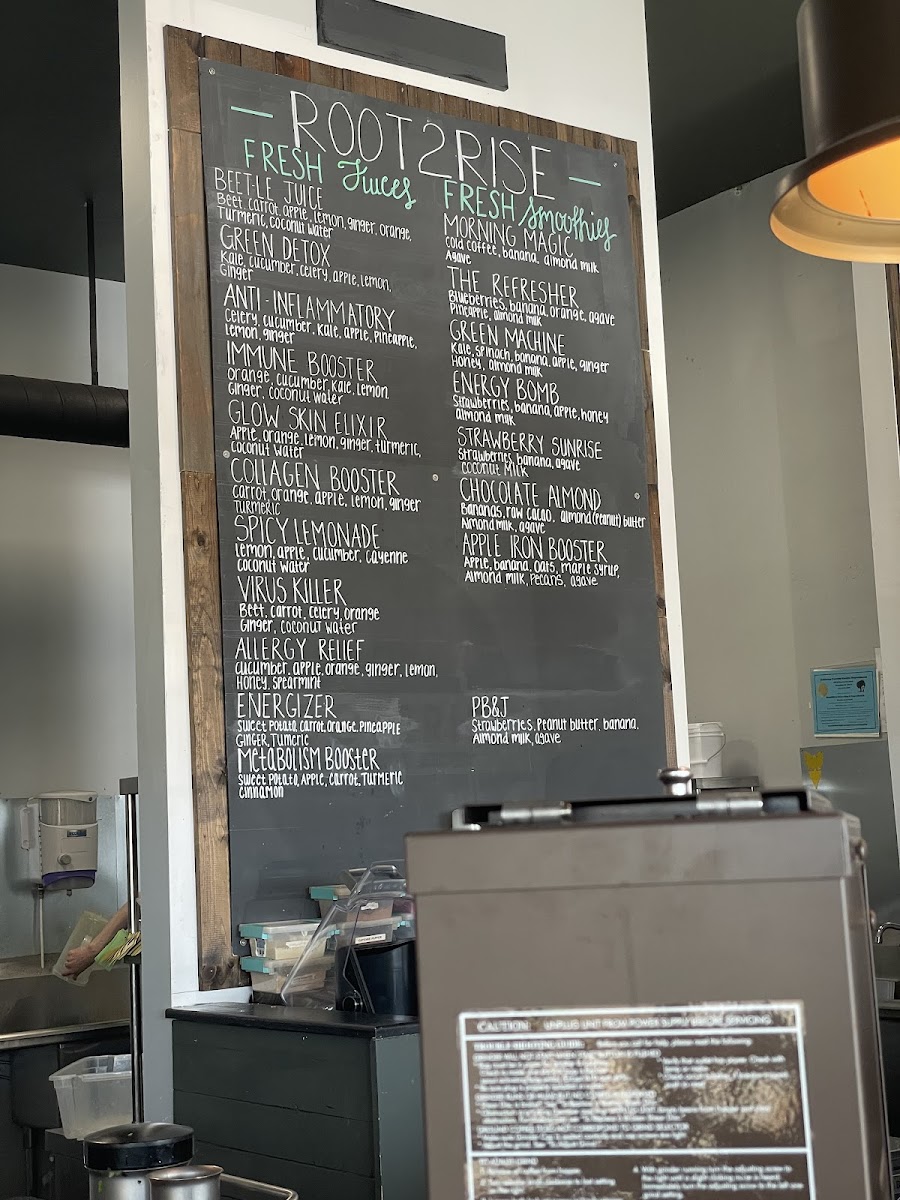 ROOT2RISE
FRESH Juices
BEET-LE JUICE
Beet, carrot, apple, lemon, ginger, orange,
Turmeric, coconut water
GREEN DETOX
Kale, cucumber, celery, apple, lemon,
Ginger
ANTI-INFLAMMATORY
Celery, cucumber, kale, apple, pineapple,
Lemon, ginger
IMMUNE BOOSTER
Orange, cucumber, kale, lemon
Ginger, coconut water
GLOW SKIN ELIXIR
Apple, orange, lemon, ginger, turmeric,
Coconut water
COLLAGEN BOOSTER
Carrot, orange, apple, lemon, ginger
Turmeric
SPICY LEMONADE
Lemon, apple, cucumber, cayenne
Coconut water
VIRUS KILLER
Beet, carrot, celery, orange
Ginger, coconut water
ALLERGY RELIEF
Cucumber, apple, orange, ginger, lemon,
Honey, spearmint
ENERGIZER
Sweet potato, carrot, orange, pineapple
Ginger, Tumeric
METABOLISM BOOSTER
Sweet potato, Apple, carrot, Turmeric
Cinnamon
FRESH Smoothies
MORNING MAGIC
Cold coffee, banana, almond milk
Agave
THE REFRESHER
Blueberries, banana, orange, agave
Pineapple, almond milk
GREEN MACHINE
Kale, spinach, banana, apple, ginger
Honey, almond milk
ENERGY BOMB
Strawberries, banana, apple, honey
Almond milk
STRAWBERRY SUNRISE
Strawberries, banana, agave
Coconut milk
CHOCOLATE ALMOND
Bananas, raw cacao, almond (peanut) butter
Almond milk, agave
APPLE IRON BOOSTER
Apple, banana, oats, maple syrup,
Almond milk, pecans, agave
PB&J
Strawberries, Peanut butter, banana,
Almond milk, agave
CAUTION UNPLUG UNIT FROM POWER SUPPLY BEFORE SERVICING